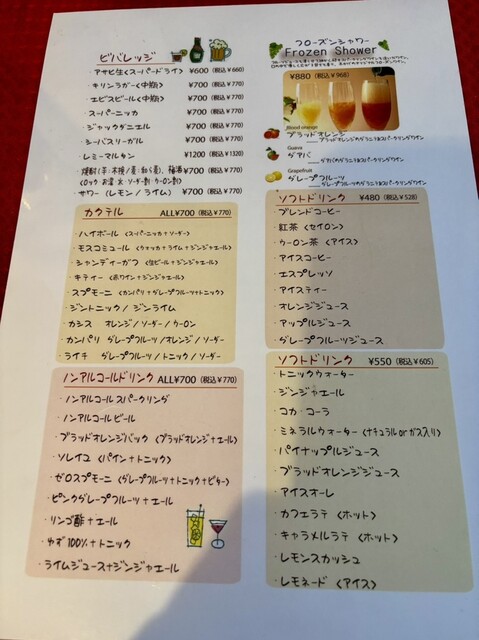 ビバレッジ
アサヒ生<スーパードライ> ¥600(税込¥660)
・キリンラガー<中瓶> ¥700(税込¥770)
・エビスビール<中瓶> ¥700(税込¥770)
・スーパーニッカ ¥700(税込¥770)
・ジャックダニエル ¥700(税込¥770)
・シーバスリーガル ¥700(税込¥770)
・レミーマルタン ¥1200(税込¥1320)
・焼酎(芋・米・麦・和ら麦)、梅酒 ¥700(税込¥770)
(ロック お湯 水 ソーダ割 ウーロン割)
・サワー(レモン / ライム) ¥700(税込¥770)
カクテル ALL¥700(税込¥770)
・ハイボール <スーパーニッカ+ソーダー>
・モスコミュール <ウォッカ+ライム+ジンジャエール>
・シャンディーガフ <生ビール+ジンジャエール>
・キティー <赤ワイン+ジンジャエール>
・スプモーニ <カンパリ+グレープフルーツ+トニック>
・ジントニック / ジンライム
・カシス オレンジ / ソーダー / ウーロン
・カンパリ グレープフルーツ / オレンジ / ソーダー
・ライチ グレープフルーツ / トニック / ソーダー
ノンアルコールドリンク ALL¥700(税込¥770)
・ノンアルコールスパークリング
・ノンアルコールビール
・ブラッドオレンジバック <ブラッドオレンジ+エール>
・ソレイユ <パイン+トニック>
・ゼロスプモーニ <グレープフルーツ+トニック+ビター>
・ピンクグレープフルーツ+エール
・リンゴ酢+エール
・ゆず100%+トニック
・ライムジュース+ジンジャエール
フローズンシャワー
Frozen Shower
¥880(税込¥968)
Blood orange
・ブラッドオレンジ
ブラッドオレンジのグラニテ&スパークリングワイン
Guava
・グアバ
グアバのグラニテ&スパークリングワイン
Grapefruit
・グレープフルーツ
グレープフルーツのグラニテ&スパークリングワイン
ソフトドリンク ¥480(税込¥528)
・ブレンドコーヒー
・紅茶 <セイロン>
・ウーロン茶 <アイス>
・アイスコーヒー
・エスプレッソ
・アイスティー
・オレンジジュース
・アップルジュース
・グレープフルーツジュース
ソフトドリンク ¥550(税込¥605)
・トニックウォーター
・ジンジャエール
・コカ・コーラ
・ミネラルウォーター <ナチュラル or ガス入り>
・パイナップルジュース
・ブラッドオレンジジュース
・アイスオーレ
・カフェラテ <ホット>
・キャラメルラテ <ホット>
・レモンスカッシュ
・レモネード <アイス>